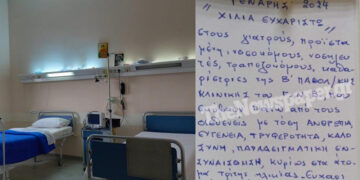 ΓΕΝΑΡΗΣ 2024
"ΧΙΛΙΑ ΕΥΧΑΡΙΣΤΩ"
στους γιατρούς, προϊστα
μένη, νοσοκόμους, νοσηλευ
τές, τραπεζονόμους, καθα
ρίστριες της Β' ΠΑΘΟΛ/ΚΗΣ
ΚΛΙΝΙΚΗΣ
πάνω από τους
ασθενείς με τόση ΑΝΘΡΩΠΙΑ
ΕΥΓΕΝΕΙΑ, ΤΡΥΦΕΡΟΤΗΤΑ, ΚΑΛΟ
ΣΥΝΗ, ΠΑΡΑΔΕΙΓΜΑΤΙΚΗ ΕΝ
ΣΥΝΑΙΣΘΗΣΗ, ΚΥΡΙΩΣ στα άτο
μα τρίτης ηλικίας. Ευχαρι